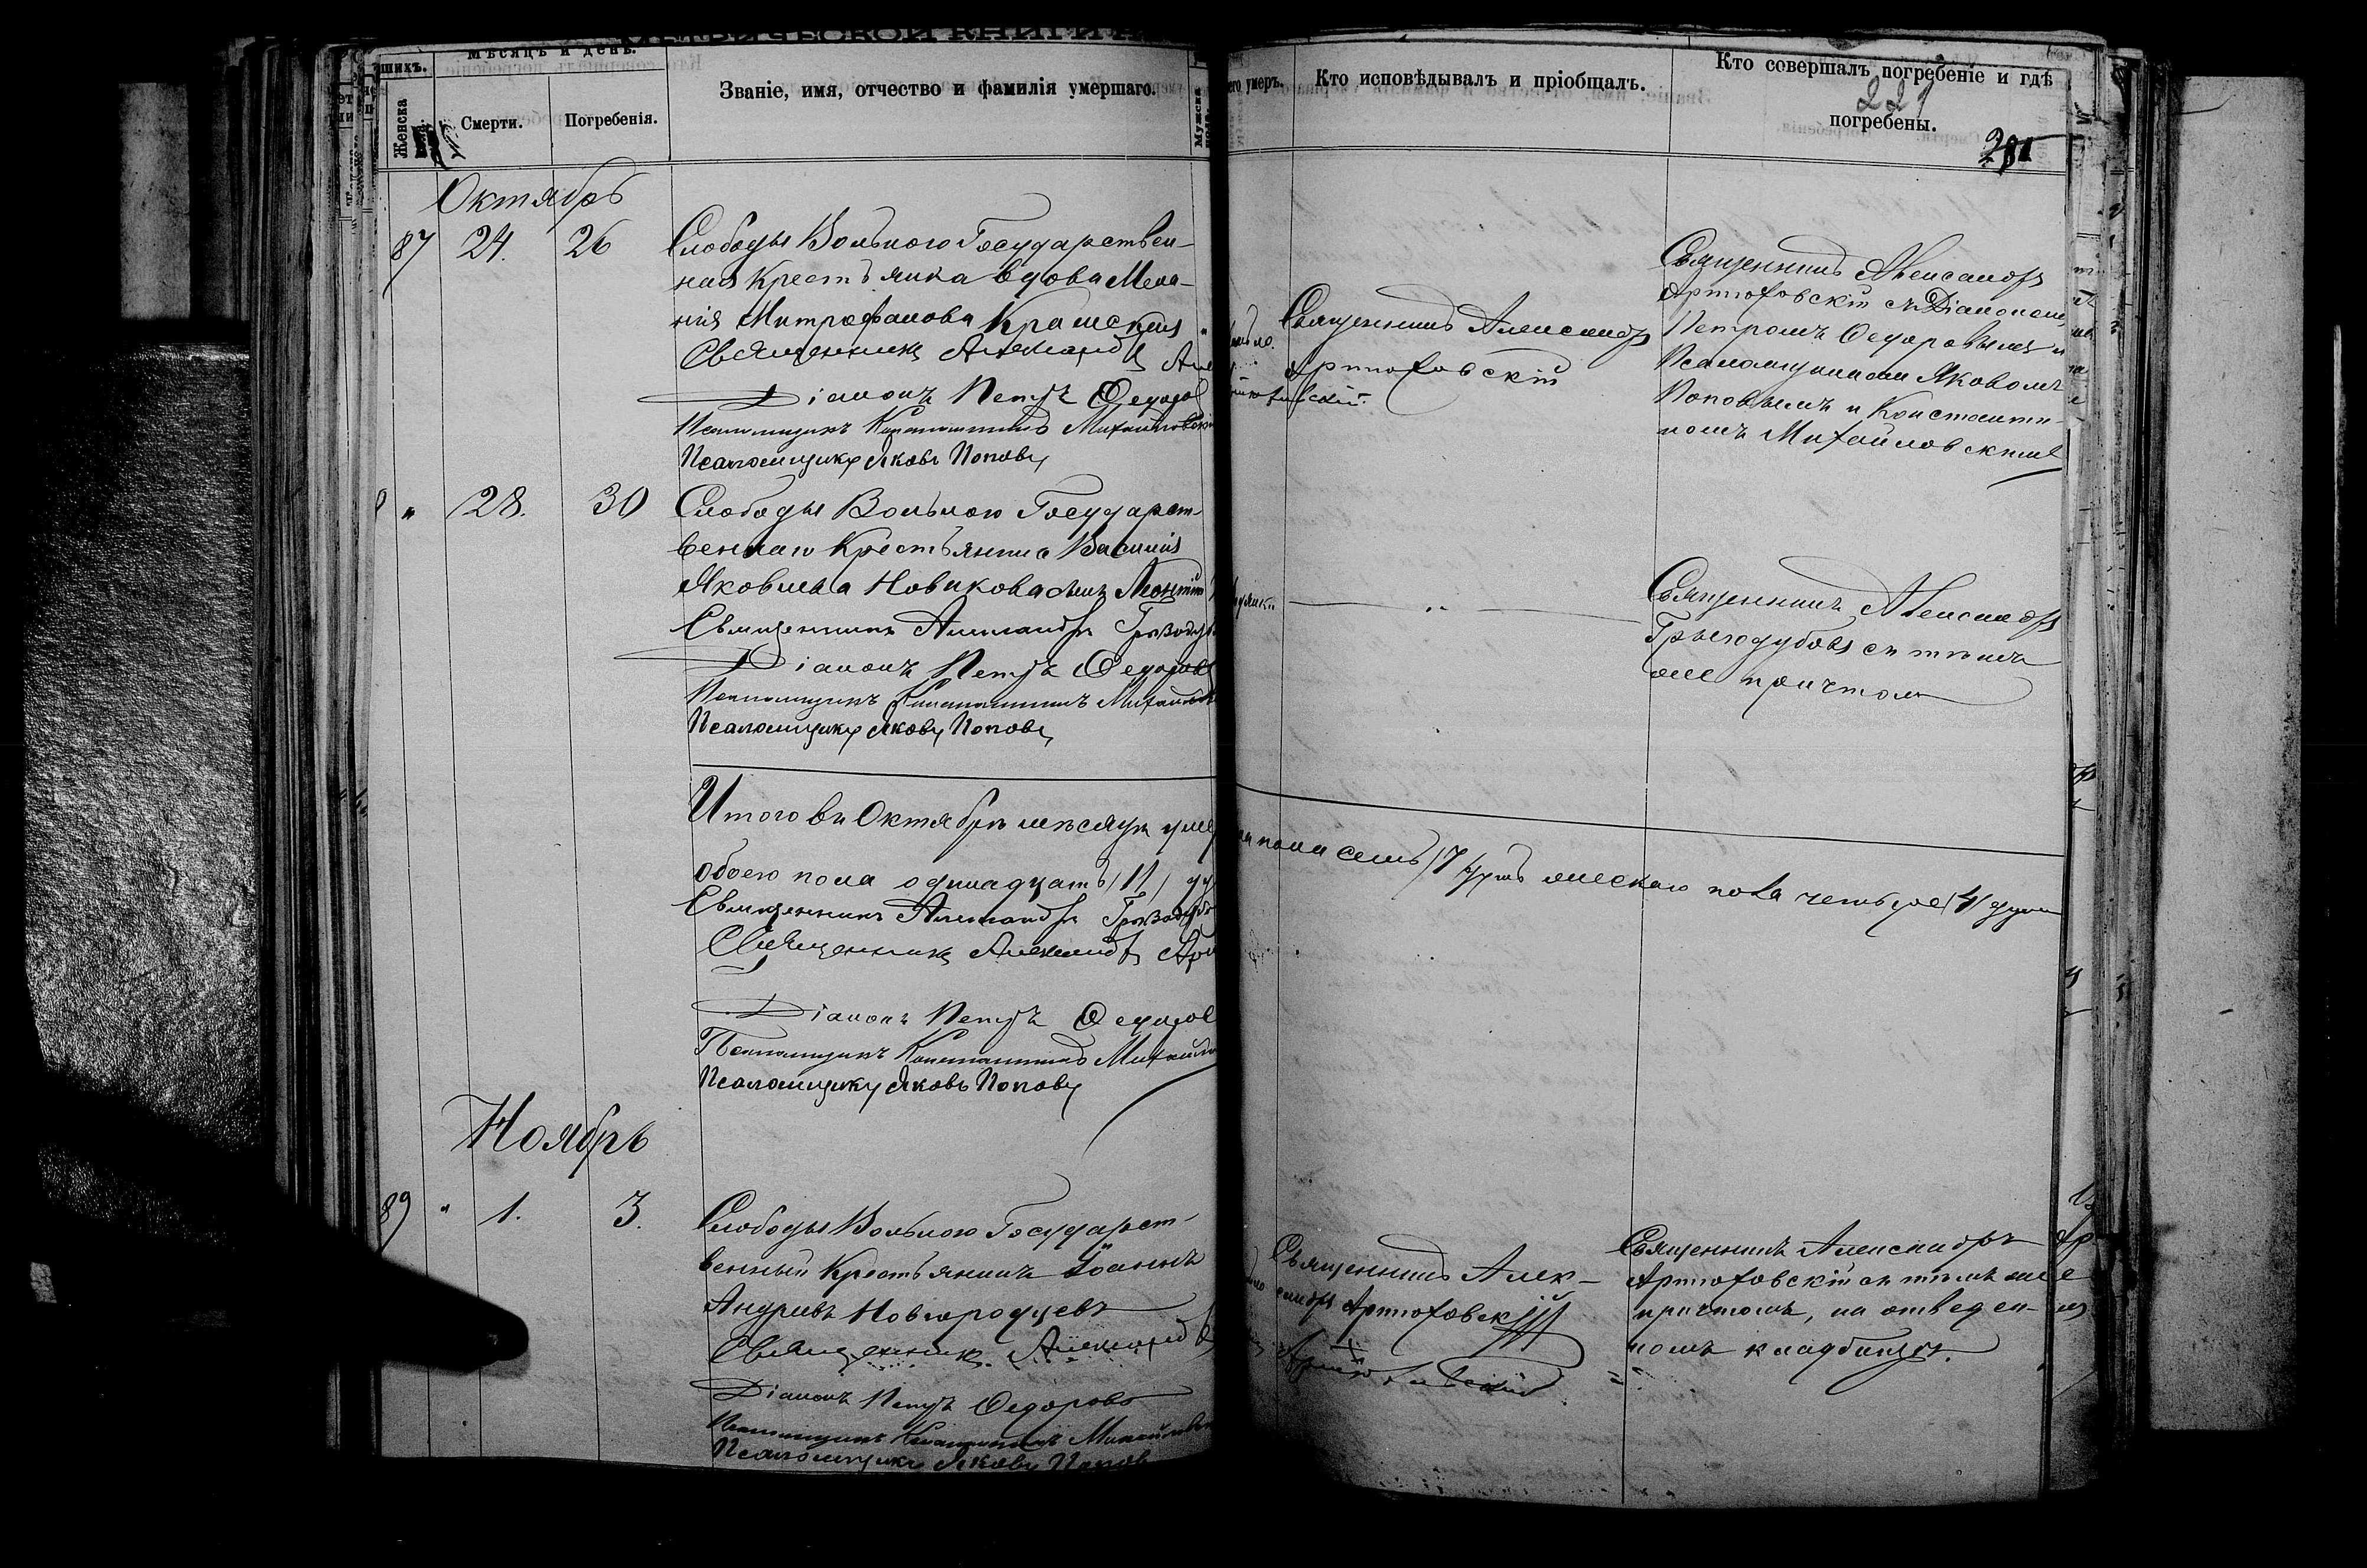 МЕТРИЧЕСКОЙ КНИГИ Н
шихъ.
Мѣсяцъ и день.
Женска
Смерти.
Погребенія.
Званіе, имя, отчество и фамилія умершаго.
Мужска
Октябрь
87 24. 26
Слободы Вольного Государствен-
ная Крестьянка вдова Мела-
нія Митрофанова Крамская
Священникъ Александръ
Діаконъ Петръ Федоров
Псаломщикъ Константинъ Михайловскі
Псаломщикъ Яковъ Поповъ
" 28. 30
Слободы Вольного Государст-
веннаго Крестьянина Василія
Яковлева Новикова сынъ Леонтій
Священникъ Александръ Грызодуб
Діаконъ Петръ Федоров
Псаломщикъ Константинъ Михайлов
Псаломщикъ Яковъ Поповъ
Итого въ Октябрѣ мѣсяцѣ умер
обоего пола одинадцать /11/ ду
Священникъ Александръ Грызодубо
Священникъ Александръ Арт
Діаконъ Петръ Федоров
Псаломщикъ Константинъ Михайло
Псаломщикъ Яковъ Поповъ
Ноябрь
89 " 1. 3.
Слободы Вольного Государст-
венный Крестьянинъ Іоаннъ
Андреевъ Новгородцевъ
Священникъ Александръ
Діаконъ Петръ Федоровъ
Псаломщикъ Константинъ Михайловск
Псаломщикъ Яковъ Попов
его умеръ.
Кто исповѣдывалъ и пріобщалъ.
Кто совершалъ погребеніе и гдѣ
погребены.
221
Священникъ Александръ
Артюховскій
Священникъ Александръ
Артюховскій съ Діакономъ
Петромъ Федоровымъ и
Псаломщиками Яковомъ
Поповымъ и Константи-
номъ Михайловскимъ
Священникъ Александръ
Грызодубовъ съ тѣмъ
же причтомъ
пола семь /7/ душъ женскаго пола четыре /4/ души
Священникъ Алек-
сандръ Артюховскій
Священникъ Александръ
Артюховскій съ тѣмъ же
причтомъ, на отведен-
номъ кладбищѣ.